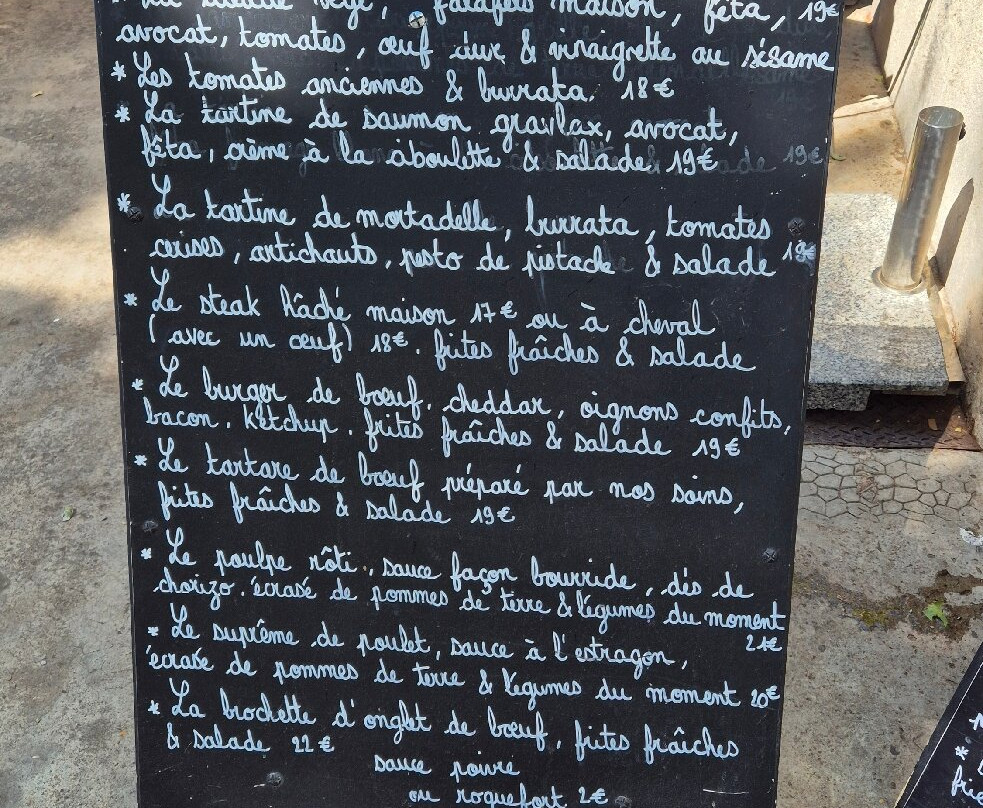 falafels maison, fêta, 19€
avocat, tomates, œuf dur & vinaigrette au sésame
* Les tomates anciennes & burrata. 18€
* La tartine de saumon gravlax, avocat,
fêta, crème à la ciboulette & salade 19€
* La tartine de mortadelle, burrata, tomates
cerises, artichauts, pesto de pistache & salade 19€
* Le steak hâché maison 17€ ou à cheval
(avec un œuf) 18€. frites fraîches & salade
* Le burger de bœuf. cheddar, oignons confits,
bacon. Ketchup. frites fraîches & salade 19€
* Le tartare de bœuf préparé par nos soins,
frites fraîches & salade 19€
* Le poulpe rôti, sauce façon bourride, dés de
chorizo. écrasé de pommes de terre & légumes du moment
21€
* Le suprême de poulet, sauce à l'estragon,
écrasé de pommes de terre & légumes du moment 20€
* La brochette d'onglet de bœuf, frites fraîches
& salade 22€
sauce poivre
ou roquefort 2€